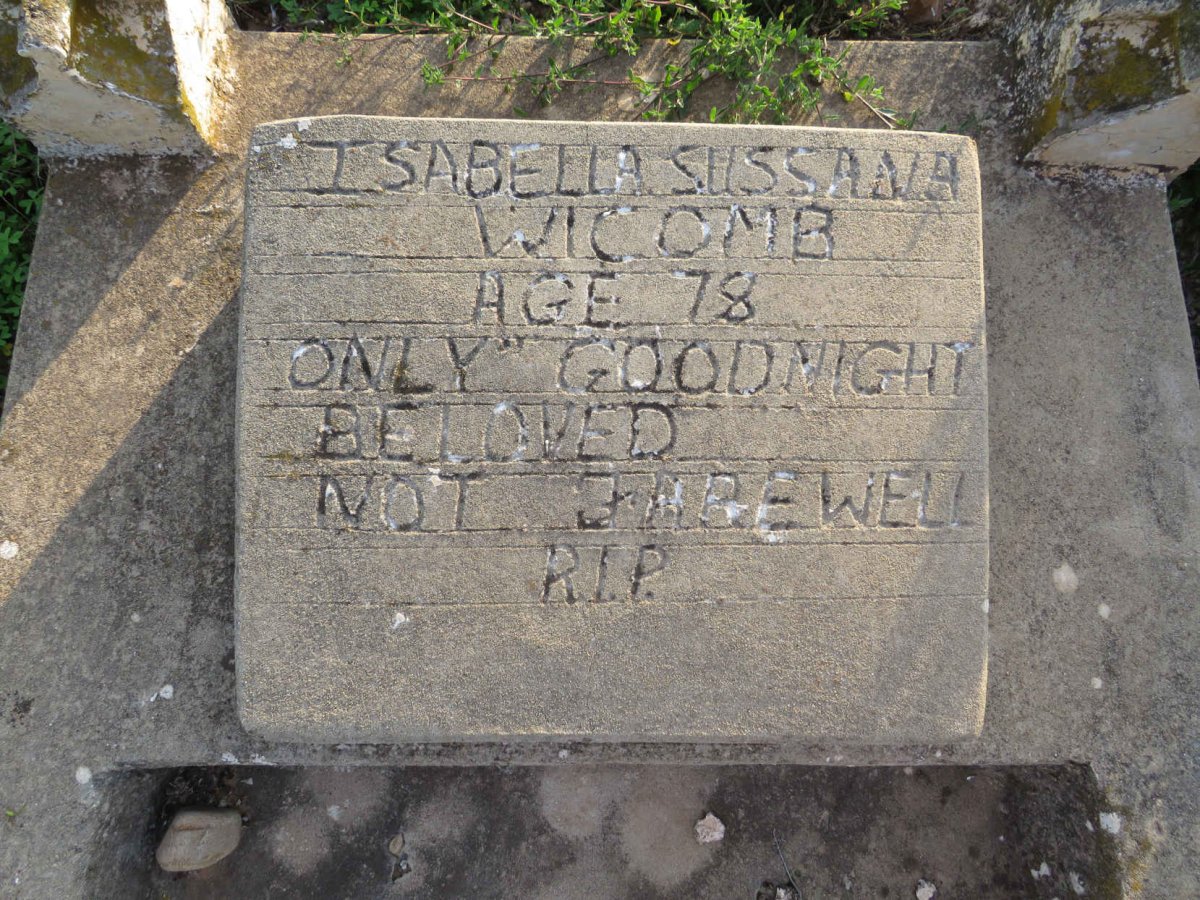 ISABELLA SUSSANA
WICOMB
AGE 78
"ONLY" GOODNIGHT
BELOVED
NOT FAREWELL
R.I.P.